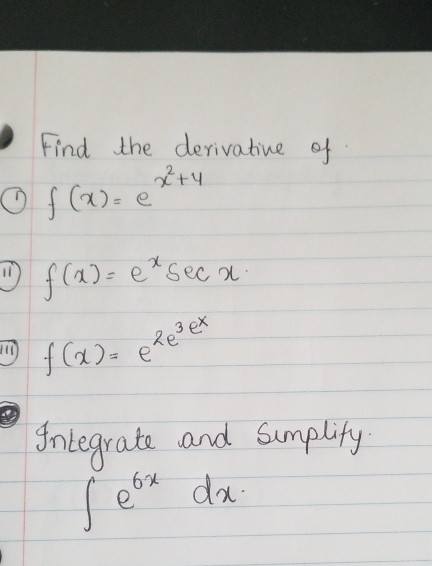 Find the derivative of
(i) f(x) = e^{x²+4}
(ii) f(x) = e^x sec x.
(iii) f(x) = e^{2e^{3e^x}}
Integrate and Simplify.
∫ e^{6x} dx.